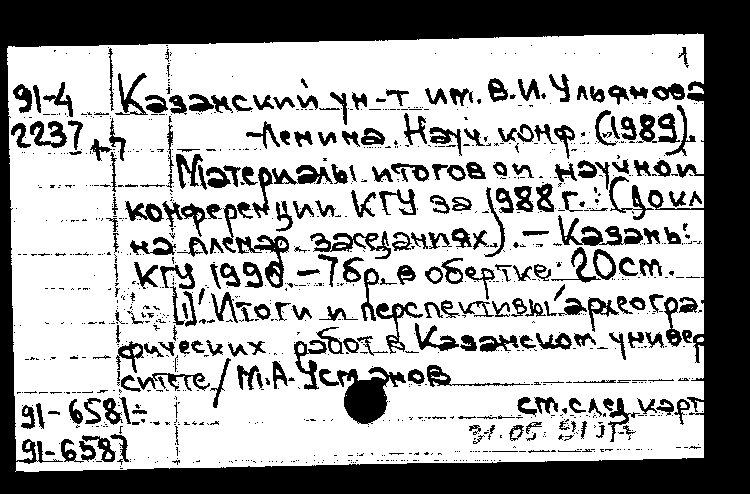 1
91-4 Казанский ун-т им. В.И. Ульянова
2237 +7 -Ленина. Науч. конф. (1989).
Материалы итоговой научной
конференции КГУ за 1988 г.: (Докл
на пленар. заседаниях). — Казань:
КГУ 1990. — 7 бр. в обертке. 20 см.
[1] Итоги и перспективы археогра-
фических работ в Казанском универ
ситете / М.А. Усманов
91-6581÷ см. след. карт
91-6587 31.05.91